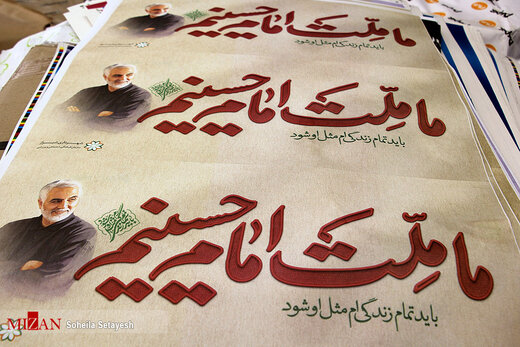 ما ملّت امام حسینیم
باید تمام زندگی ام مثل او شود
ما ملّت امام حسینیم
باید تمام زندگی ام مثل او شود
ما ملّت امام حسینیم
باید تمام زندگی ام مثل او شود
MIZAN Soheila Setayesh